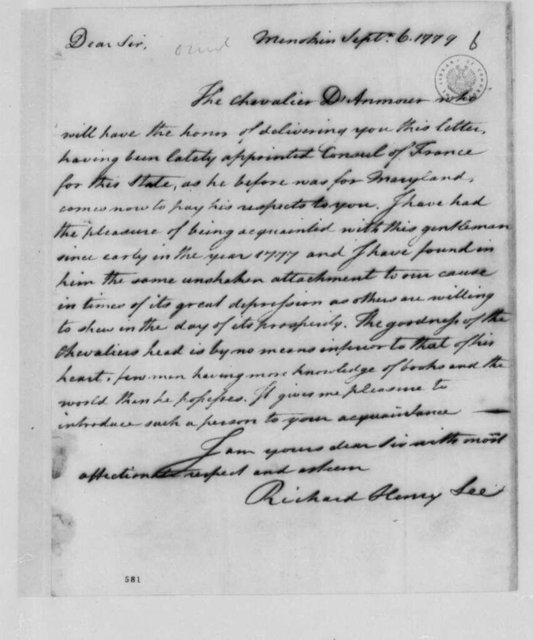 Dear Sir,
Menokin Septr. 6. 1779
6
The Chevalier D'Anmour who
will have the honor of delivering you this letter,
having been lately appointed Consul of France
for this State, as he before was for Maryland,
comes now to pay his respects to you. I have had
the pleasure of being acquainted with this gentleman
since early in the year 1777 and I have found in
him the same unshaken attachment to our cause
in times of its great depression as others are willing
to shew in the day of its prosperity. The goodness of the
Chevaliers head is by no means inferior to that of his
heart, few men having more knowledge of books and the
world than he possesses. It gives me pleasure to
introduce such a person to your acquaintance —
I am yours dear Sir with most
affectionate respect and esteem
Richard Henry Lee
581